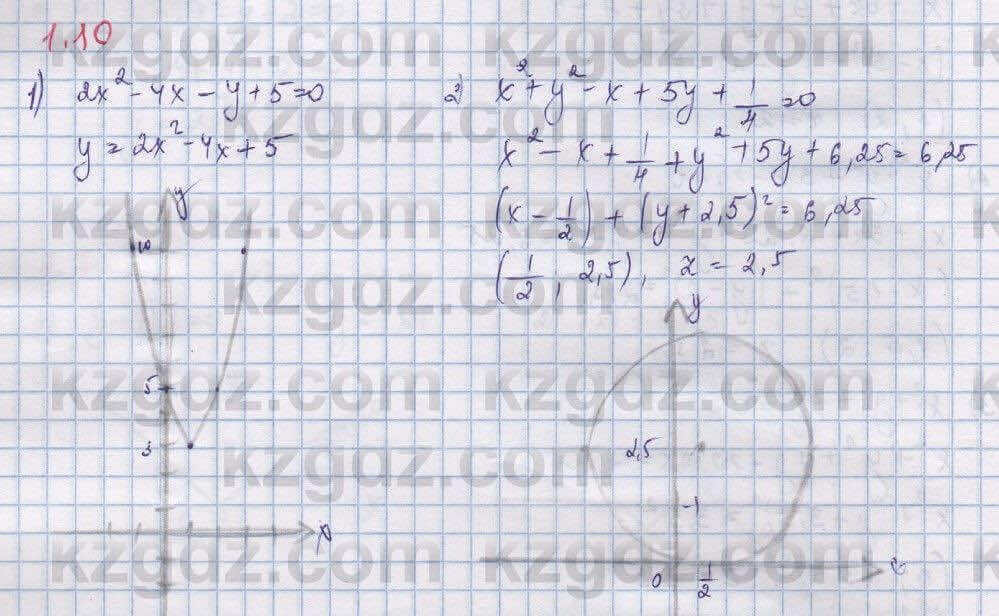 1.10
1) 2x² - 4x - y + 5 = 0
y = 2x² - 4x + 5
y
10
5
3
x
2) x² + y² - x + 5y + 1/4 = 0
x² - x + 1/4 + y² + 5y + 6,25 = 6,25
(x - 1/2) + (y + 2,5)² = 6,25
(1/2, 2,5), r = 2,5
y
2,5
-1
0 1/2
x
kzgdz.com kzgdz.com
kzgdz.com
kzgdz.com kzgdz.com
kzgdz.com
kzgdz.com kzgdz.com
kzgdz.com
kzgdz.com kzgdz.com